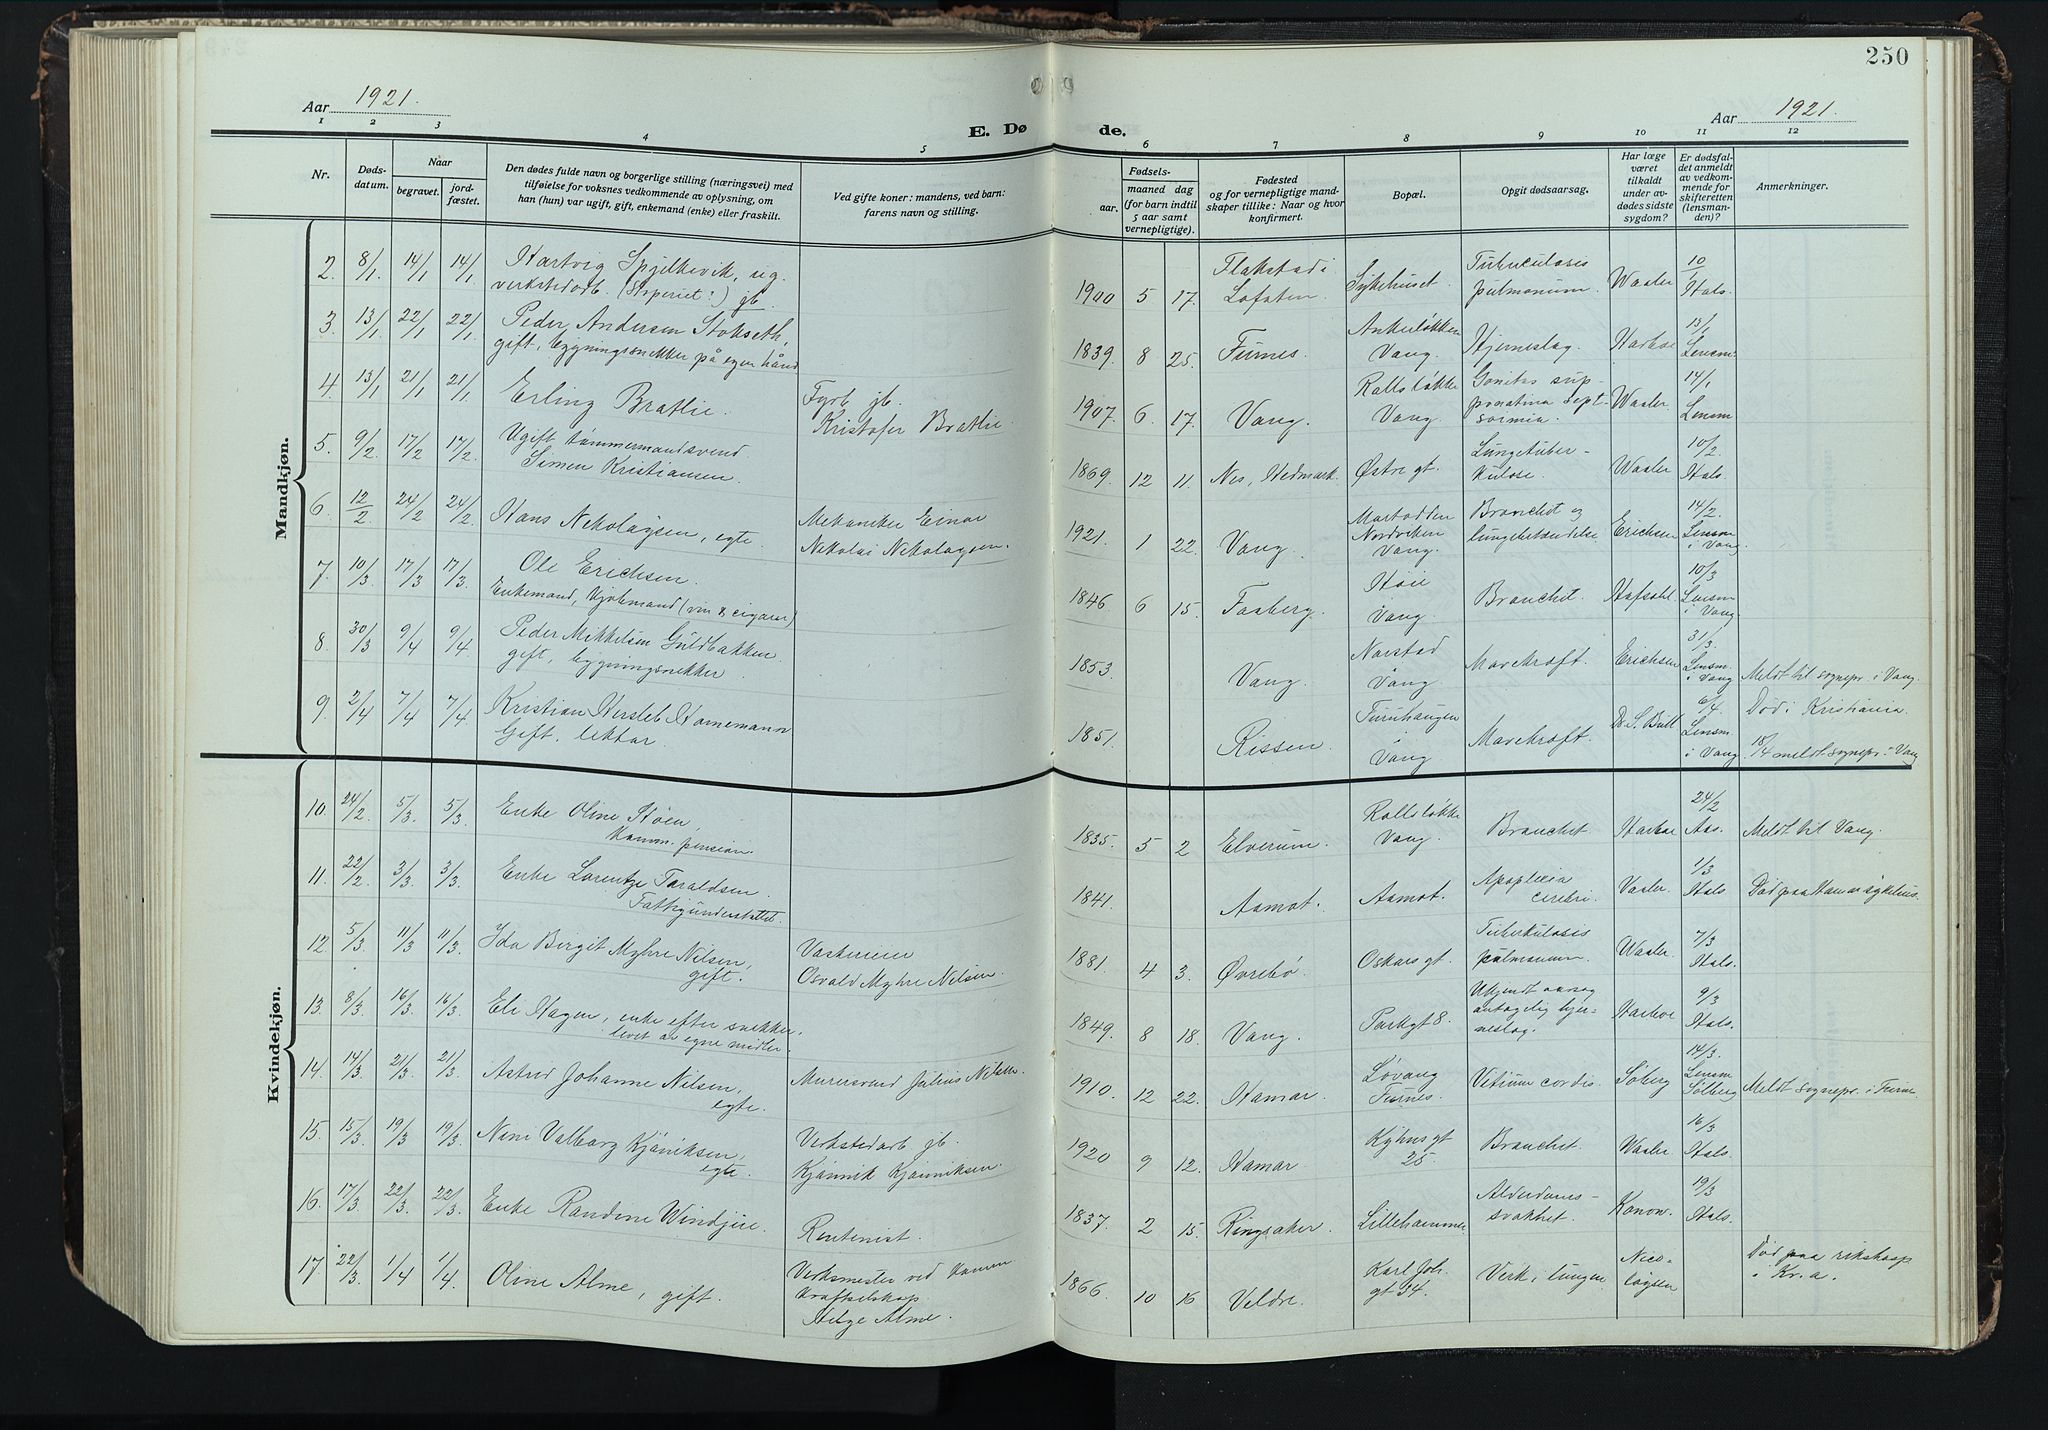 250
Aar 1921.
Aar 1921.
E. Dø
de.
1 2 3 4 5 6 7 8 9 10 11 12
Nr.
Døds-
datum.
Naar
begravet.
jord-
fæstet.
Den dødes fulde navn og borgerlige stilling (næringsvei) med
tilføielse for voksnes vedkommende av oplysning, om
han (hun) var ugift, gift, enkemand (enke) eller fraskilt.
Ved gifte koner: mandens, ved barn:
farens navn og stilling.
Fødsels-
aar.
maaned dag
(for barn indtil
5 aar samt
vernepligtige).
Fødested
og for vernepligtige mand-
skaper tillike: Naar og hvor
konfirmert.
Bopæl.
Opgit dødsaarsag.
Har læge
været
tilkaldt
under av-
dødes sidste
sygdom?
Er dødsfal-
det anmeldt
av vedkom-
mende for
skifteretten
(lensman-
den)?
Anmerkninger.
Mandkjøn.
2. 8/1 14/1 14/1 Hartvig Spjelkevik, ug.
verkstedarb. (Støperiet?) jb.
1900 5 17. Flakstad i
Lofoten. Sykehuset Tuberculosis
pulmonum. Waaler 10/1 Hals.
3. 13/1 22/1 22/1 Peder Andersen Stokseth,
gift, bygningssnekker på egen hånd
1839 8 25. Furnes. Ankerløkken
Vang. Hjerneslag. Harboe 15/1
Lensm.
4. 13/1 21/1 21/1 Erling Bratlie. Fyrb. jb.
Kristofer Bratlie.
1907 6 17. Vang. Rollsløkke
Vang. Gonitis sup-
purativa Sept-
Waaler. 14/1
Lensm
5. 9/2 17/2 17/2. Ugift tømmermandsvend
Simen Kristiansen.
1869 12 11. Nes, Hedmark. Østre gt. Lungetuber-
kulose. Waaler 10/2
Hals.
6. 12/2 24/2 24/2. Hans Nikolaysen, egte. Mekaniker Einar
Nikolai Nikolaysen.
1921. 1 22. Vang. Nordviken
Vang. Bronchit og
lungebetændelse Erichsen 14/2.
Lensm
i Vang.
7. 10/3 17/3 17/3. Ole Erichsen.
Enkemand, Kjøbmand (vin & cigarer)
1846 6 15. Faaberg. Høie
Vang. Bronchit. Hafsahl 10/3
Lensm
i Vang
8. 30/3 9/4 9/4. Peder Mikkelsen Guldbakken.
gift, bygningssnekker
1853. Vang. Norstad
Vang. Mavekræft. Erichsen 31/3.
Lensm.
i Vang Meldt til sognepr. i Vang.
9. 2/4 7/4 7/4. Kristian Hersleb Hornemann
Gift, lektor.
1851. Rissen. Furuhaugen
Vang Mavekræft. Dr. S. Bull 6/4.
Lensm.
i Vang Død i Kristiania.
18/4 meldt sognepr. i Vang
Kvindekjøn.
10. 24/2 5/3 5/3. Enke Oline Høen,
Komm. pension.
1835. 5 2 Elverum. Rollsløkke
Vang Bronchit Harboe 24/2
Aas. Meldt til Vang.
11. 22/2 3/3 3/3. Enke Lorentze Taraldsen.
Fattigunderstøttet.
1841. Aamot. Aamot. Apoplexia
cerebri. Vaaler. 1/3
Hals. Død paa Hamar sykehus.
12. 5/3 11/3 11/3. Ida Birgit Myhre Nilsen,
gift. Vaskerieier
Osvald Myhre Nilsen.
1881. 4 3. Øvrebø. Oskars gt. Tuberkulosis
pulmonum. Waaler. 7/3
Hals.
13. 8/3 16/3 16/3. Eli Hagen, enke efter snekker,
levet av egne midler.
1849 8 18. Vang. Parkgt 8. Ukjendt aarsag
antagelig hjer-
neslag. Harboe 9/3
Hals.
14. 14/3 21/3 21/3. Astrid Johanne Nilsen,
egte. Murersvend Julius Nilsen.
1910. 12 22. Hamar. Løvang
Furnes. Vitium cordis. Solberg 14/3.
Lensm
Solberg Meldt sognepr. i Furnes
15. 15/3 19/3 19/3. Nini Valborg Kjønniksen,
egte. Verkstedarb jb.
Kjønnik Kjønniksen.
1920 9 12. Hamar Kyhns gt
25 Bronchit. Waaler 16/3
Hals.
16. 17/3 22/3 22/3. Enke Randine Windju. Rentenist.
1837. 2 15. Ringsaker. Lillehammer Alderdoms-
svakhet. Konow. 19/3
Hals.
17. 22/3. 1/4 1/4. Oline Alme, gift. Verksmester ved Hamar
Kraftselskap
Helge Alme.
1866. 10 16 Veldre. Karl Joh.
gt 34. Verk i lungen Nico-
laysen Død paa rikshosp
i Kr.a.